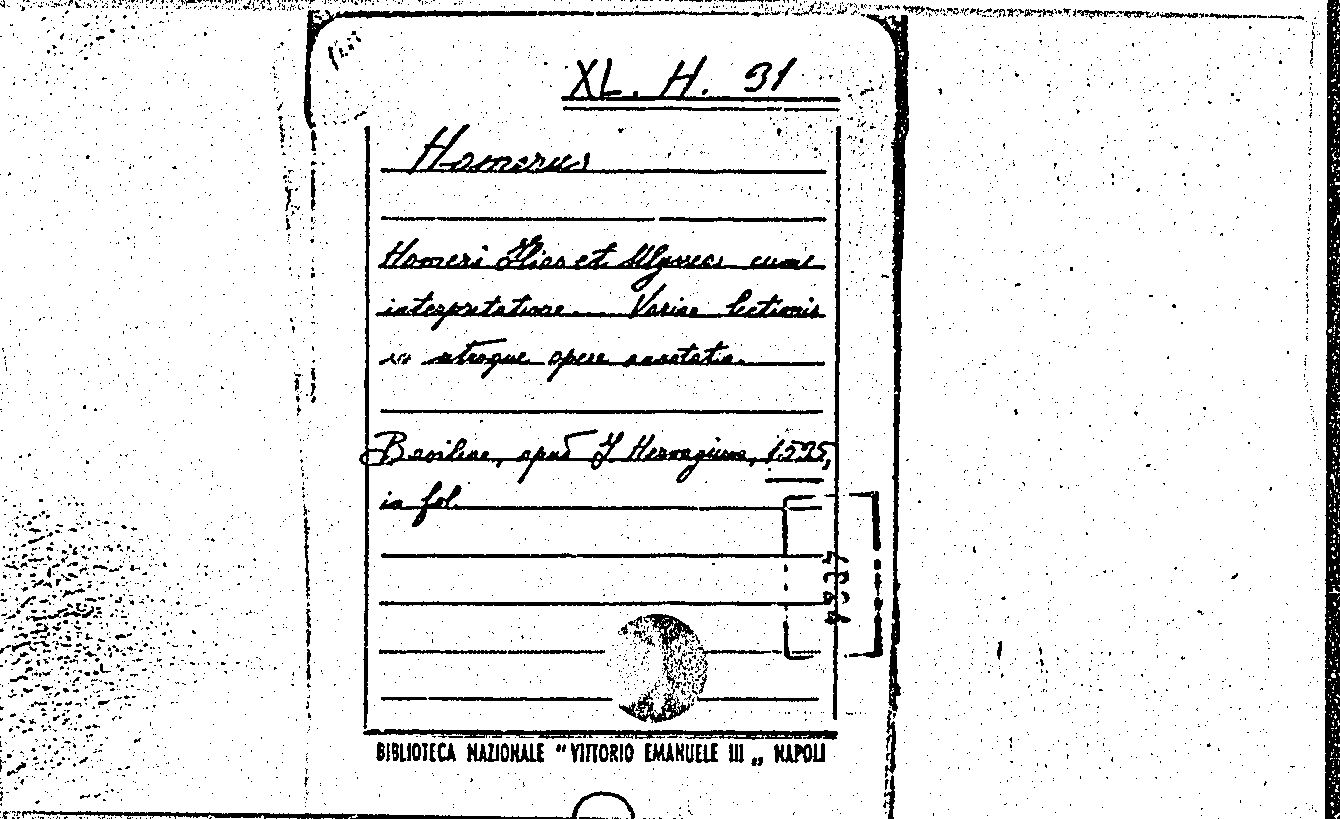 XL. H. 31
Homerus
Homeri Ilias et Ulyssea cum
interpretatione... Variae lectionis
in utroque opere annotatis.
Basileae, apud J Hervagium, 1535,
in fol.
BIBLIOTECA NAZIONALE "VITTORIO EMANUELE III„ NAPOLI